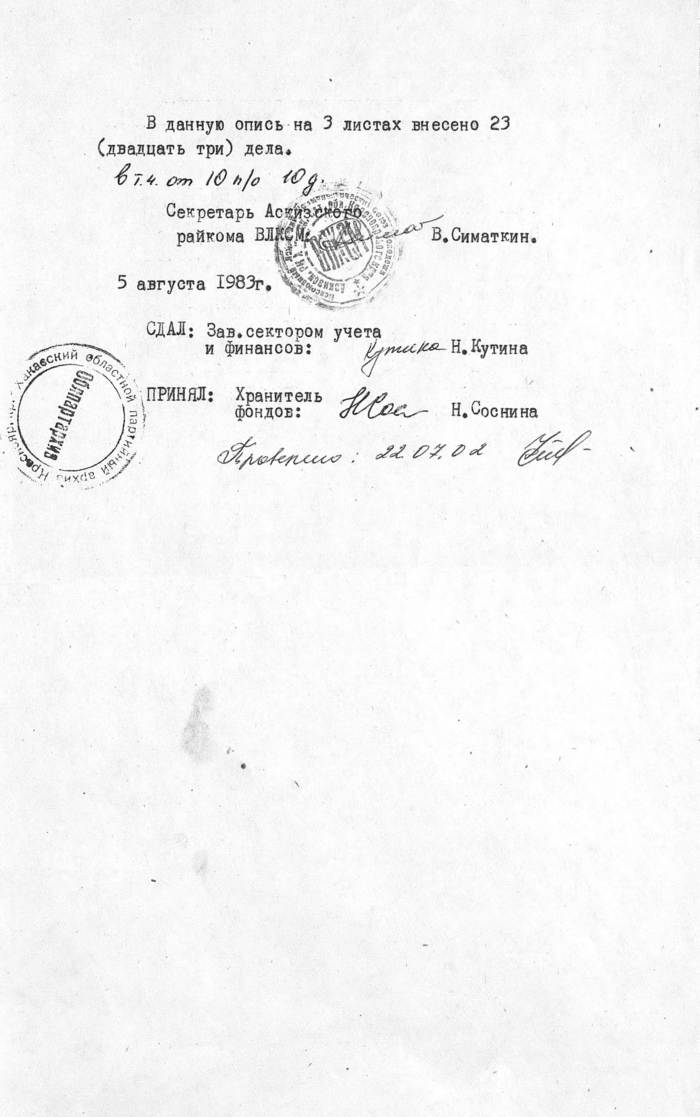 В данную опись на 3 листах внесено 23
(двадцать три) дела.
в т.ч. от 10 п/о 10 д.
Секретарь Аскизского
райкома ВЛКСМ: В.Симаткин.
5 августа 1983г.
СДАЛ: Зав.сектором учета
и финансов: Кутина Н.Кутина
Хакасский областной партийный архив
Облпартархив
ПРИНЯЛ: Хранитель
фондов: Н.Соснина
Проверено: 22.07.02